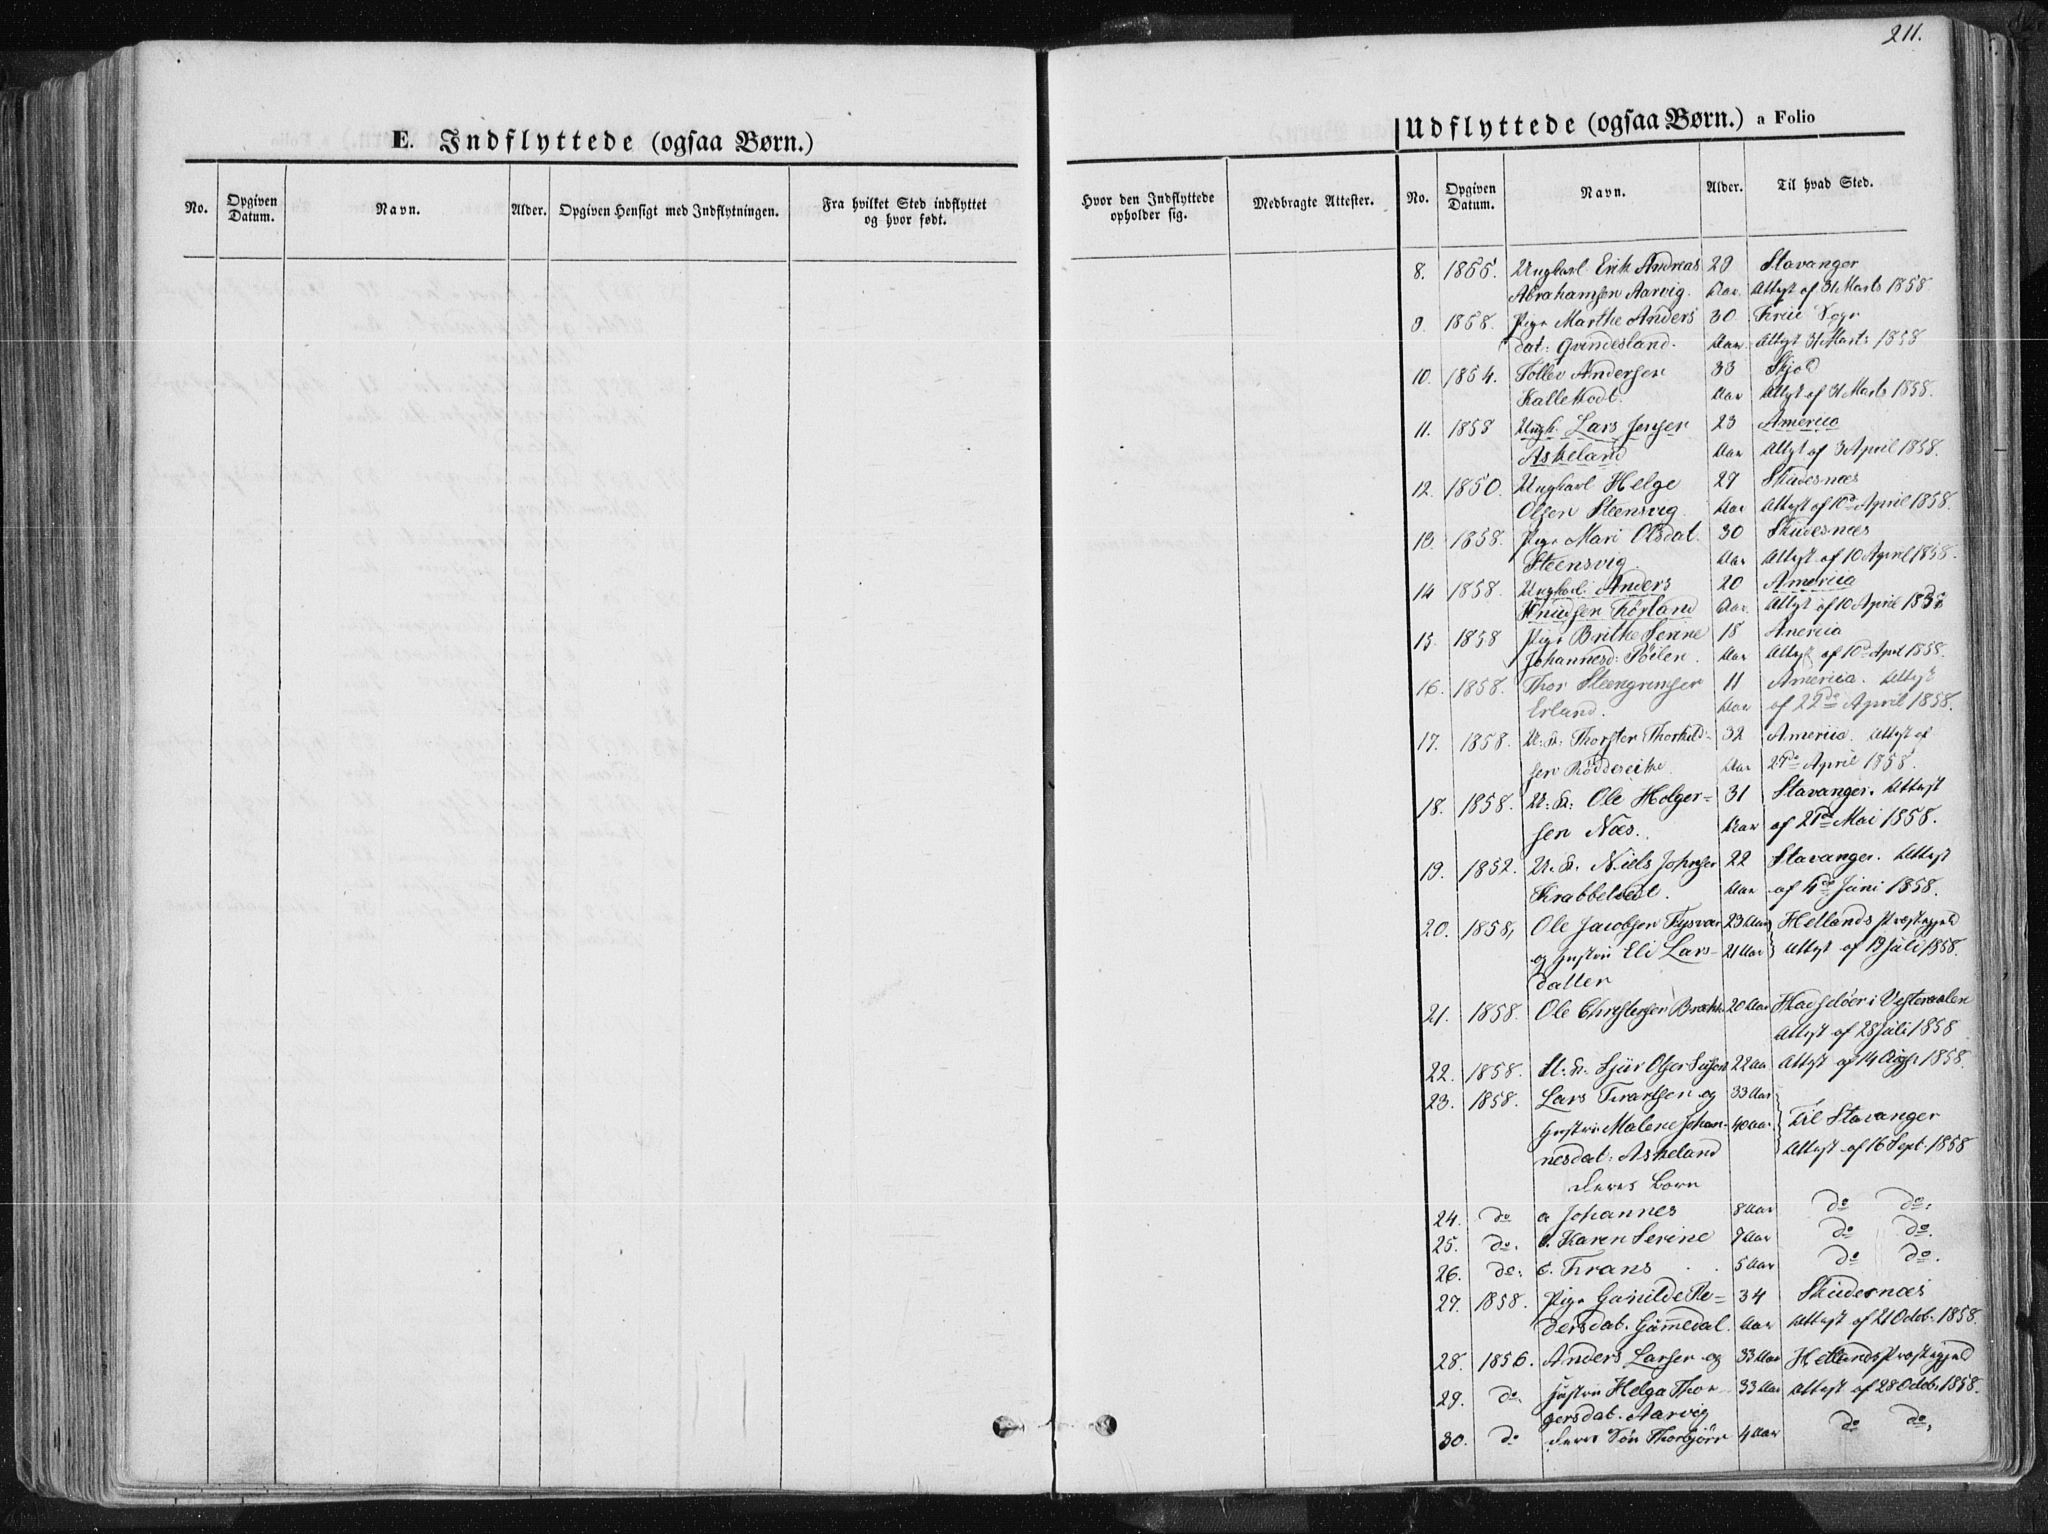 211.
E. Indflyttede (ogsaa Børn.)
Udflyttede (ogsaa Børn.) a Folio
No.
Opgiven Datum.
Navn.
Alder.
Opgiven Hensigt med Indflytningen.
Fra hvilket Sted indflyttet og hvor født.
Hvor den Indflyttede opholder sig.
Medbragte Attester.
No.
Opgiven Datum.
Navn.
Alder.
Til hvad Sted.
8. 1855. Ungkarl Erik Andreas 29 Stavanger
Abrahamsen Aarvig. Aar. Attest af 31 Marts 1858.
9. 1858. Pige Marthe Anders 30
dat: Qvindesland. Aar Attest 31 Marts 1858
10. 1854. Tollev Andersen 33 Skjold
Aar Attest af 31 Marts 1858.
11. 1858 Ungk. Lars Jensen 23 America
Askeland Aar Attest af 3 April 1858.
12. 1850. Ungkarl Helge 27 Skudesnæs
Olsen Steensvig. Aar Attest af 10d April 1858.
13. 1858. Pige Mari Olsdat. 30 Skudesnæs
Steensvig. Aar Attest af 10 April 1858.
14 1858. Ungkarl Anders 20 America
Knudsen Aar. Attest af 10 April 1858
15. 1858 Pige Brithe Serine 18 America
Johannesd: Aar Attest af 10d April 1858.
16. 1858. Thor Steengrimsen 11 America. Attest
Erland. Aar af 22de April 1858.
17. 1858. U: K: Thorsten Thorkild- 32 America. Attest af
sen Aar April 1858.
18. 1858. U: K: Ole Holger= 31 Stavanger. Attest
sen Næs. Aar af Mai 1858.
19. 1852. U. K. Niels Johnsen 22 Stavanger. Attest
Krabbetvedt. Aar af Juni 1858.
20. 1858, Ole Jacobsen Tysvær 23 Aar Hetlands Præstegjeld
og Hustru Eli Lars- 21 Aar Attest af 19 Juli 1858.
datter
21. 1858. Ole Christensen 20 Aar Hadseløer i Vesteraalen
Attest af 28 Juli 1858
22. 1858. U: K. Sjur Olsen 22 Aar Attest af 14 Aug. 1858.
23. 1858. Lars Frantsen og 33 Aar
Hustru Malene Johan- 40 Aar Til Stavanger
nesdat: Askeland Attest af 16 Sept. 1858
deres Børn
24. do a Johannes 8 Aar do do.
25. do. b. Karen Serine 7 Aar do do.
26. do: c. Frans 5 Aar do do.
27. 1858. Pige Gunilde Pe= 34 Skudesnæs
dersdat. Aar Attest af 21 Octob. 1858.
28. 1856. Anders Larsen og 33 Aar Hetlands Præstegjeld
29. do. Hustru Helga Thor- 33 Aar Attest af 28 Octob. 1858.
gersdat. Aarvig
30. do deres Søn Thorbjørn 4 Aar do do,